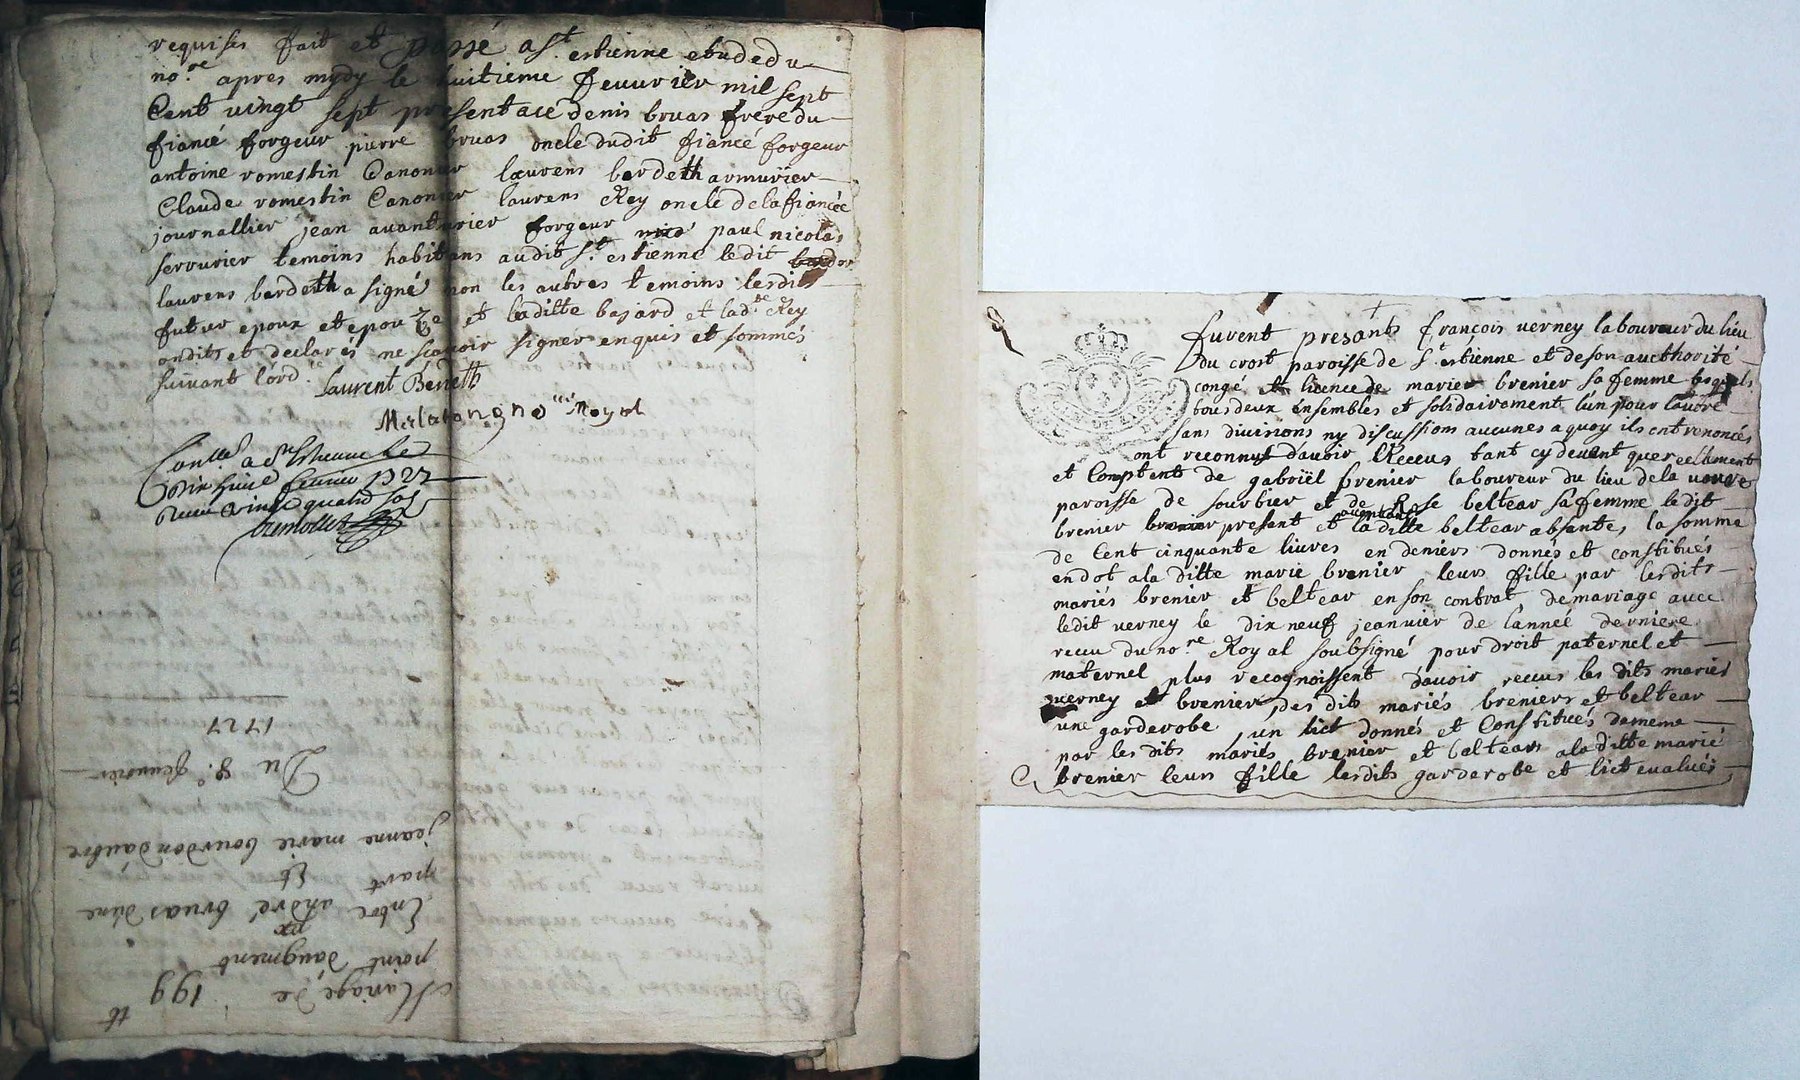 requises fait et passé a st estienne etude du
no.re apres mydy le huitieme feuurier mil sept
Cent vingt sept present ace denis bruas frere du
fiancé forgeur pierre bruas oncle dudit fiancé forgeur
antoine romestin Canonier laurens bardeth armurier
Claude romestin Canonier laurens Rey oncle delafiancée
journallier jean auanturier forgeur paul nicolas
serrurier temoins habitans audit st. estienne ledit
laurens berdeth a signé non les autres temoins lesdits
futur epoux et epouze et laditte bajard et lad.te Rey
ondit et declarés ne sçauoir signer enquis et sommés
suiuant lord.ce
Laurent Berdeth
no.re Royal
Conllé a st Estienne le
Dix huit feurier 1727
Receu vingt quatre sols
Mariage de 199
point daugment
Entre andré bruas dune
part Et
jeanne marie bourdon dautre
Du 8.e feuurier
1727
furent presants françois verney laboureur du lieu
du crost paroisse de st. estienne et de son aucthorité
congé et licence de marier brenier sa femme lesquels
tous deux ensembles et solidairament l'un pour lautre
sans diuisions ny discussions aucunes aquoy ils ont renoncés
ont reconnus dauoir Receus tant cy deuant que reellement
et Comptent de gabriël brenier laboureur du lieu de la
paroisse de sourbier et de Rose beltear sa femme ledit
brenier present et la ditte beltear absante, la somme
de Cent cinquante liures en deniers donnés et constitués
en dot ala ditte marie brenier leurs fille par lesdits
mariés brenier et beltear en son contrat de mariage auec
ledit verney le dix neuf jeanuier de lanneé derniere
receu du no.re Royal soubsigné pour droit paternel et
maternel plus recognoissent dauoir receus les dits mariés
verney et brenier, des dits mariés breniers et beltear
une garderobe, un lict donnés et Constitués de meme
par les dits mariés brenier et beltears ala ditte marie
brenier leurs fille lesdits garderobe et lict eualués